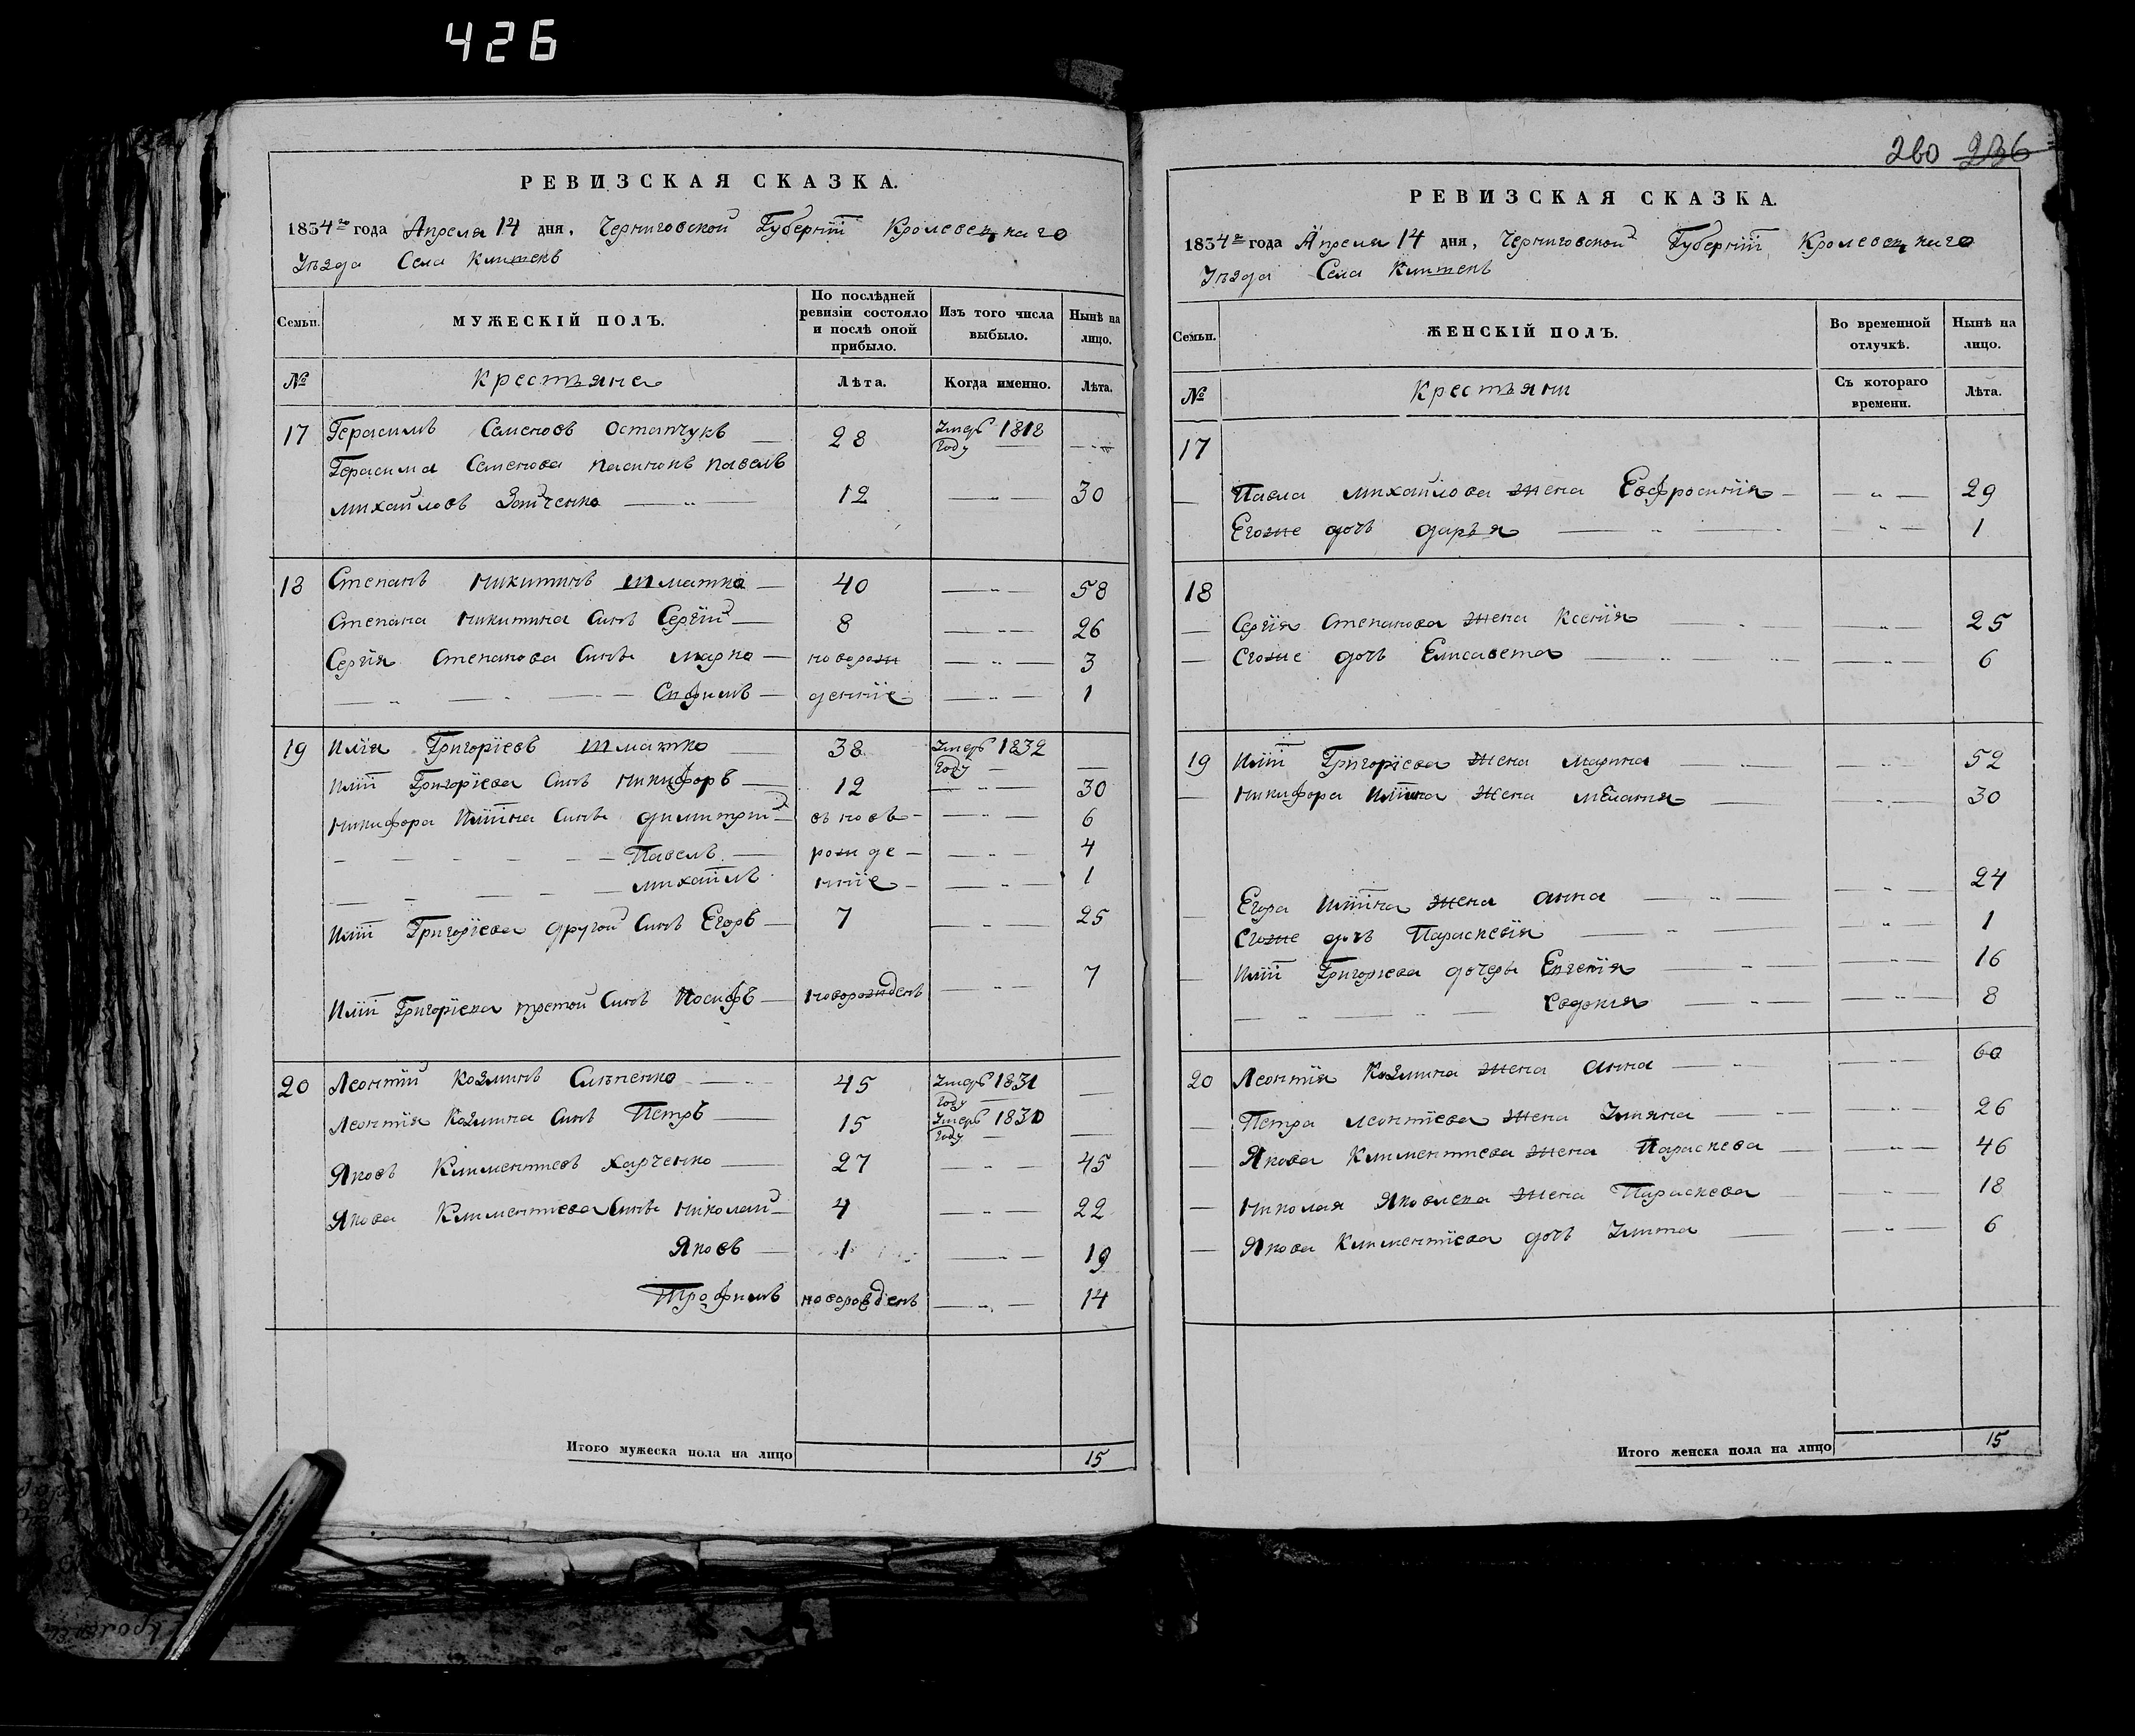 426
РЕВИЗСКАЯ СКАЗКА.
1834го года Апреля 14 дня, Черниговской Губернїи Кролевецкаго
Уѣзда Села Клишекъ
Семьи.
МУЖЕСКІЙ ПОЛЪ.
По послѣдней ревизіи состояло и послѣ оной прибыло.
Изъ того числа выбыло.
Нынѣ на лицо.
№
Крестьяне
Лѣта.
Когда именно.
Лѣта.
17 Герасимъ Семеновъ Остапчукъ — 28 Умеръ 1818 Году —
Герасима Семенова пасинокъ Павелъ
Михайловъ Зайченко — 12 — 30
18 Степанъ Никитинъ Шматко — 40 — 58
Степана Никитина Синъ Сергїй — 8 — 26
Сергїя Степанова Сины Марко — новорож — 3
— — — — 1
деннїе
19 Илїя Григорїевъ Шматко 38 Умеръ 1832 Году —
Илїи Григорїева Синъ Никифоръ — 12 — 30
Никифора Илїина Сины Димитрий — вновь — 6
— Павелъ — рожде — — 4
— Михаилъ ннїе — — 1
Илїи Григорїева другой Синъ Егоръ — 7 — 25
Илїи Григорїева третой Синъ Иосифъ — новорожденъ — 7
20 Леонтїй Козминъ Силченко — 45 Умеръ 1831 Году —
Леонтїя Козмина Синъ Петръ — 15 Умеръ 1830 Году —
Яковъ Климентїевъ Харченко — 27 — 45
Якова Климентїева Сины Николай — 4 — 22
Яковъ — 1 — 19
Трофимъ новорожденъ — 14
Итого мужеска пола на лицо 15
260 236
РЕВИЗСКАЯ СКАЗКА.
1834го года Апреля 14 дня, Черниговской Губернїи Кролевецкаго
Уѣзда Села Клишекъ
Семьи.
ЖЕНСКІЙ ПОЛЪ.
Во временной отлучкѣ.
Нынѣ на лицо.
№
Крестьяни
Съ котораго времени.
Лѣта.
17
— Павла Михайлова жена Евфросинїя — — 29
Егоже дочь Дарья — — 1
18
— Сергїя Степанова жена Ксенїя — — 25
— Егоже дочь Елисавета — — 6
19 Илїи Григорїева жена Марина — — 52
— Никифора Илїина жена Меланїя — — 30
— Егора Илїина жена Анна — — 24
Егоже дочь Параскевїя — — 1
— Илїи Григорїева дочери Евгенїя — — 16
— Евдокїя — — 8
20 Леонтїя Козмина жена Анна — — 60
— Петра Леонтїева жена Улияна — — 26
— Якова Климентїева жена Параскева — — 46
— Николая Яковлева жена Параскева — — 18
— Якова Климентїева дочь Улита — — 6
Итого женска пола на лицо 15